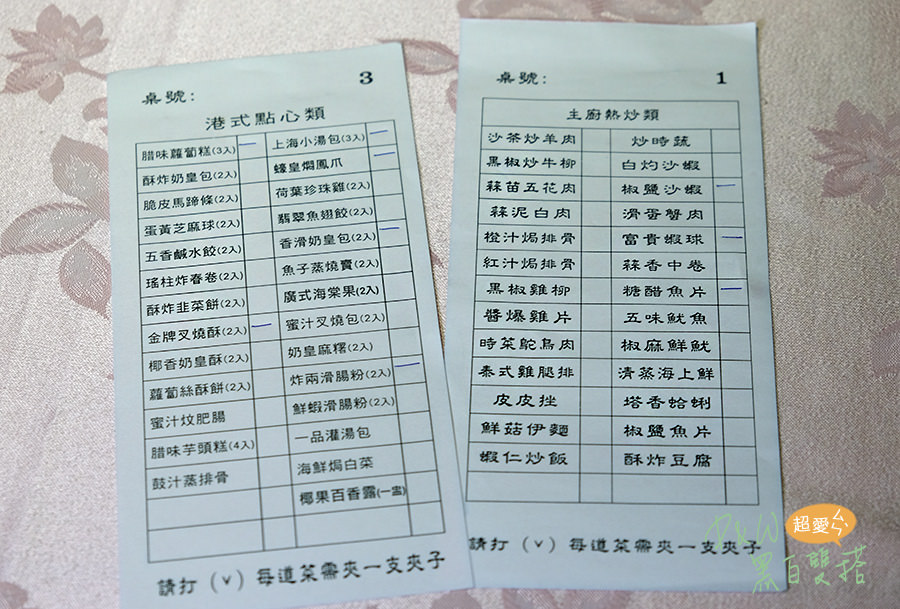 桌號: 3
港式點心類
腊味蘿蔔糕(3入) 一 上海小湯包(3入) 一
酥炸奶皇包(2入) 蠔皇燜鳳爪 一
脆皮馬蹄條(2入) 荷葉珍珠雞(2入)
蛋黃芝麻球(2入) 翡翠魚翅餃(2入)
五香鹹水餃(2入) 香滑奶皇包(2入) 一
瑤柱炸春卷(2入) 魚子蒸燒賣(2入)
酥炸韭菜餅(2入) 廣式海棠果(2入)
金牌叉燒酥(2入) 一 蜜汁叉燒包(2入)
椰香奶皇酥(2入) 奶皇麻糬(2入)
蘿蔔絲酥餅(2入) 炸兩滑腸粉(2入) 一
蜜汁炆肥腸 鮮蝦滑腸粉(2入)
腊味芋頭糕(4入) 一品灌湯包
鼓汁蒸排骨 海鮮焗白菜
椰果百香露(一盅)
請打(v)每道菜需夾一支夾子
桌號: 1
主廚熱炒類
沙茶炒羊肉 炒時蔬
黑椒炒牛柳 白灼沙蝦
蒜苗五花肉 椒鹽沙蝦 一
蒜泥白肉 滑蛋蟹肉
橙汁焗排骨 富貴蝦球 一
紅汁焗排骨 蒜香中卷
黑椒雞柳 糖醋魚片 一
醬爆雞片 五味魷魚
時菜鴕鳥肉 椒麻鮮魷
泰式雞腿排 清蒸海上鮮
皮皮挫 塔香蛤蜊
鮮菇伊麵 椒鹽魚片
蝦仁炒飯 酥炸豆腐
請打(v)每道菜需夾一支夾子
超愛ㄣ
黑白雙搭